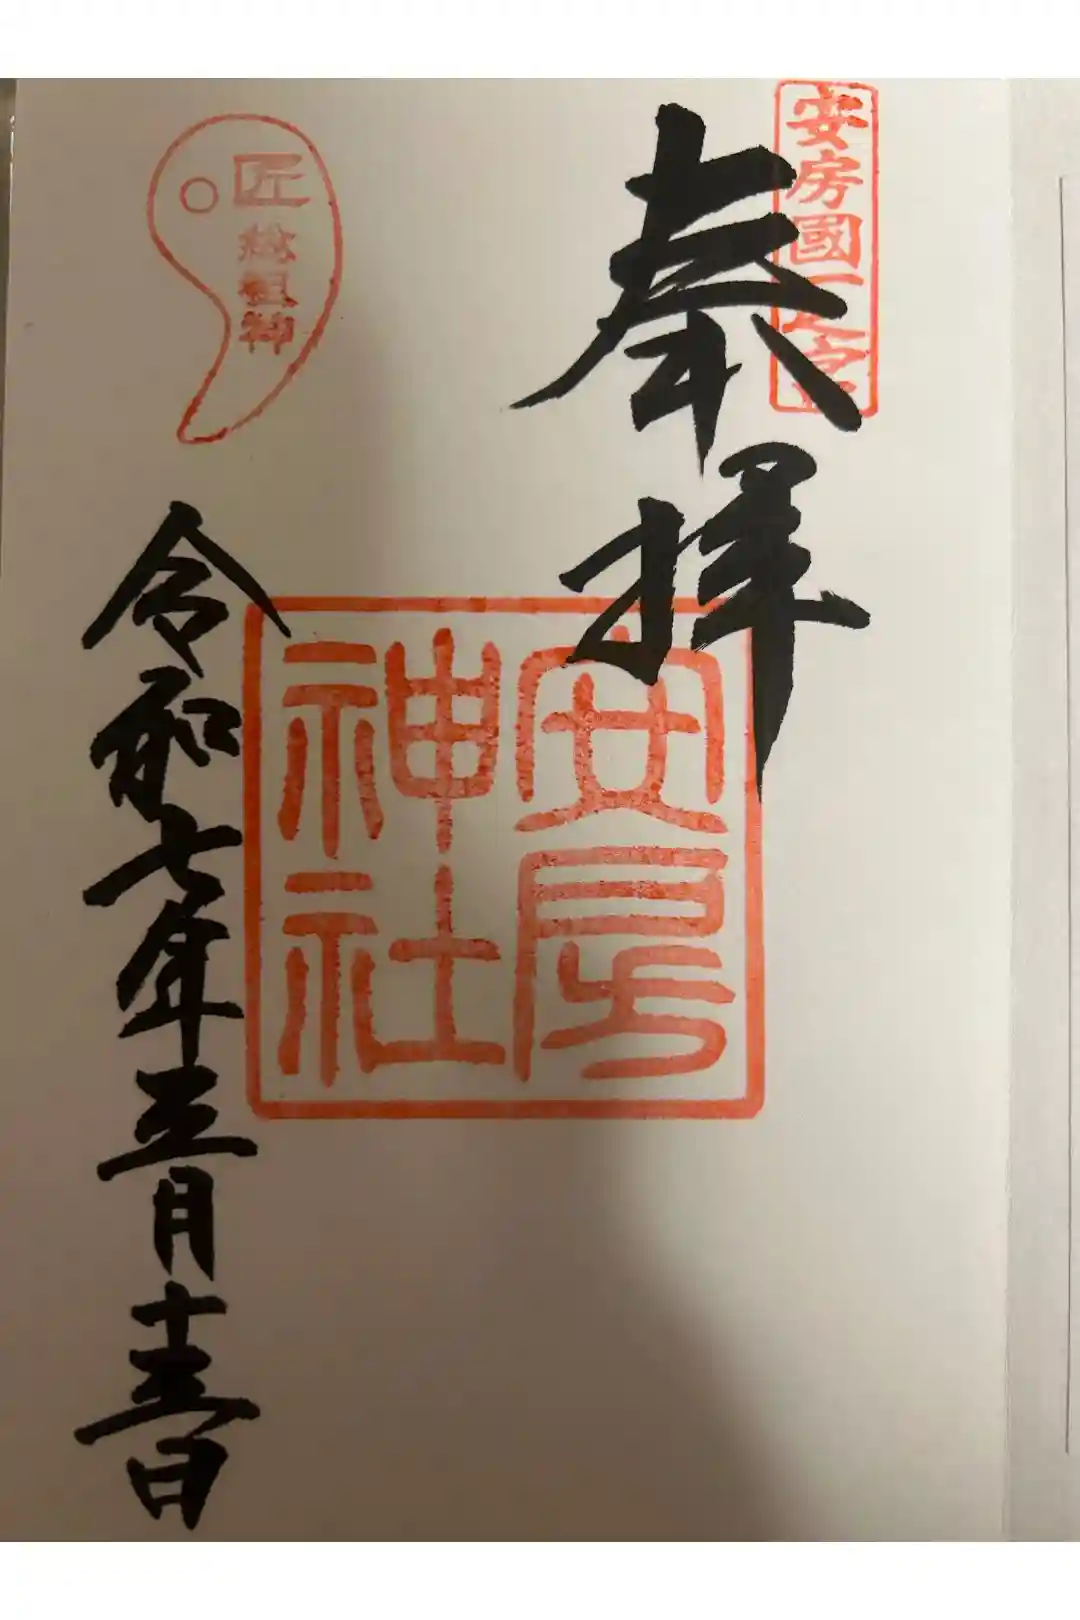 安房國一之宮
奉拝
安房
神社
匠総祖神
令和七年三月十三日